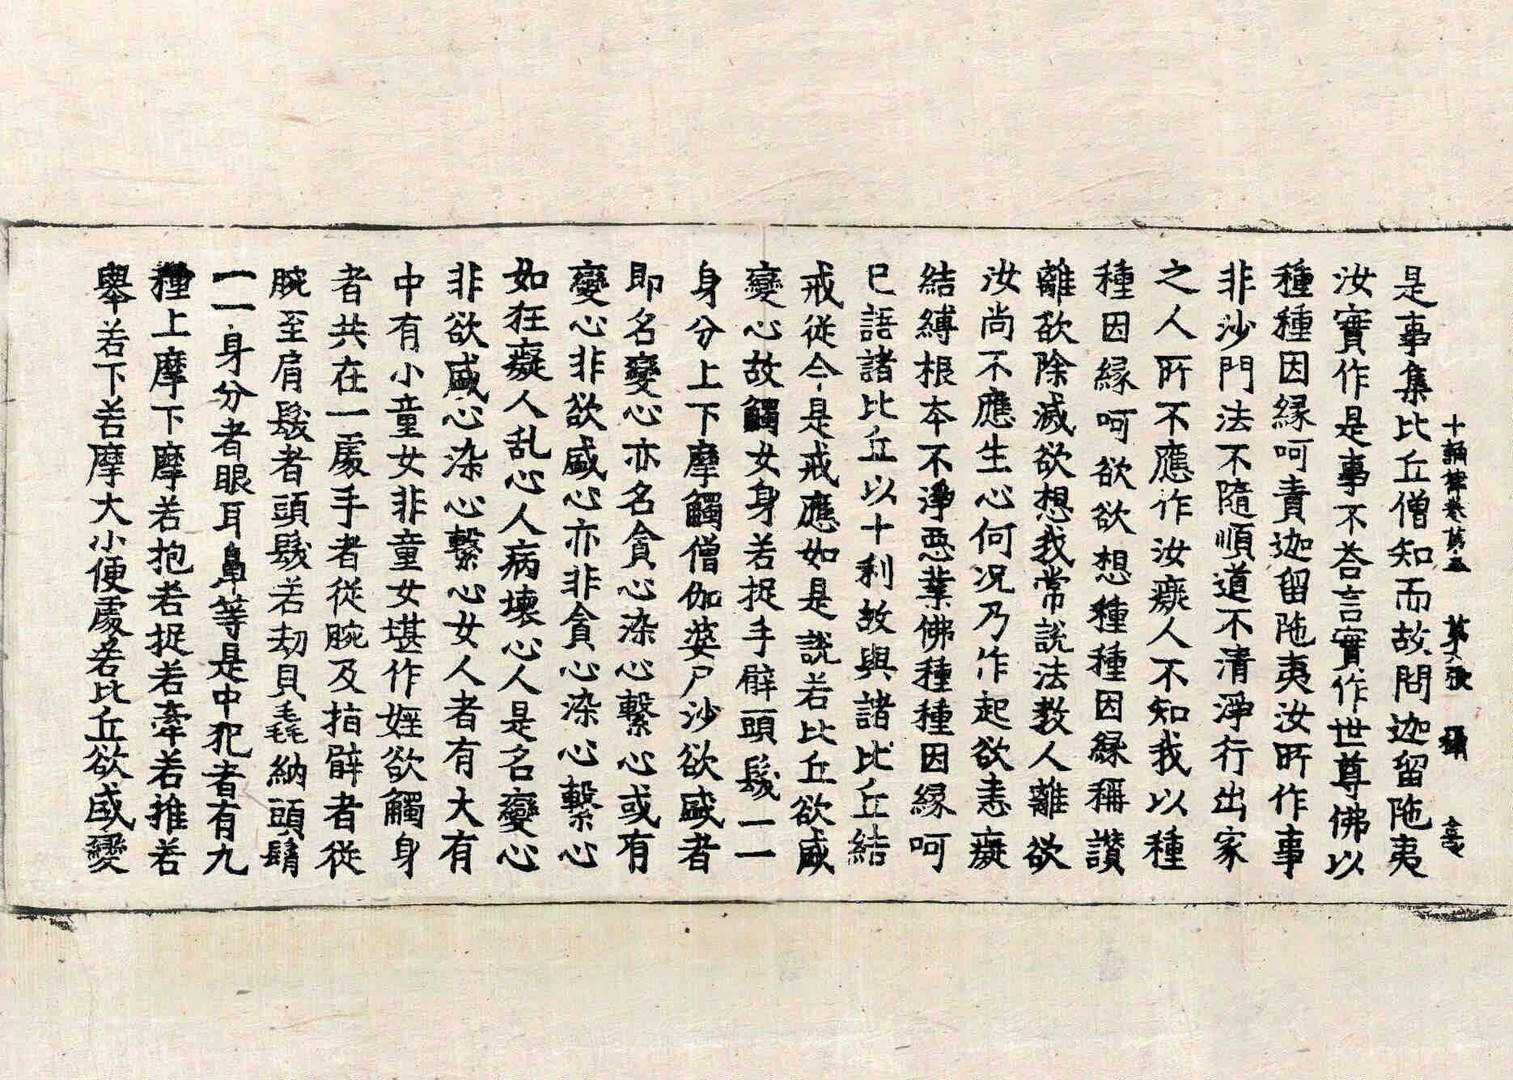 十誦律卷第三 第六張 攝 
是事集比丘僧知而故問迦留陁夷
汝實作是事不荅言實作世尊佛以
種種因緣呵責迦留陁夷汝所作事
非沙門法不隨順道不清淨行出家
之人所不應作汝癡人不知我以種
種因緣呵欲欲想種種因緣稱讃
離欲除滅欲想我常說法教人離欲
汝尚不應生心何况乃作起欲恚癡
結縛根夲不淨惡業佛種種因緣呵
已語諸比丘以十利故與諸比丘結
戒從今是戒應如是說若比丘欲盛
變心故觸女身若捉手臂頭髮一一
身分上下摩觸僧伽婆尸沙欲盛者
即名變心亦名貪心染心繫心或有
變心非欲盛心亦非貪心染心繫心
如狂癡人乱心人病壞心人是名變心
非欲盛心染心繫心女人者有大有
中有小童女非童女堪作婬欲觸身
者共在一處手者從腕及指臂者從
腕至肩髮者頭髮若劫貝毳納頭䯻
一一身分者眼耳鼻等是中犯者有九
種上摩下摩若抱若捉若牽若推若
舉若下若摩大小便處若比丘欲盛變